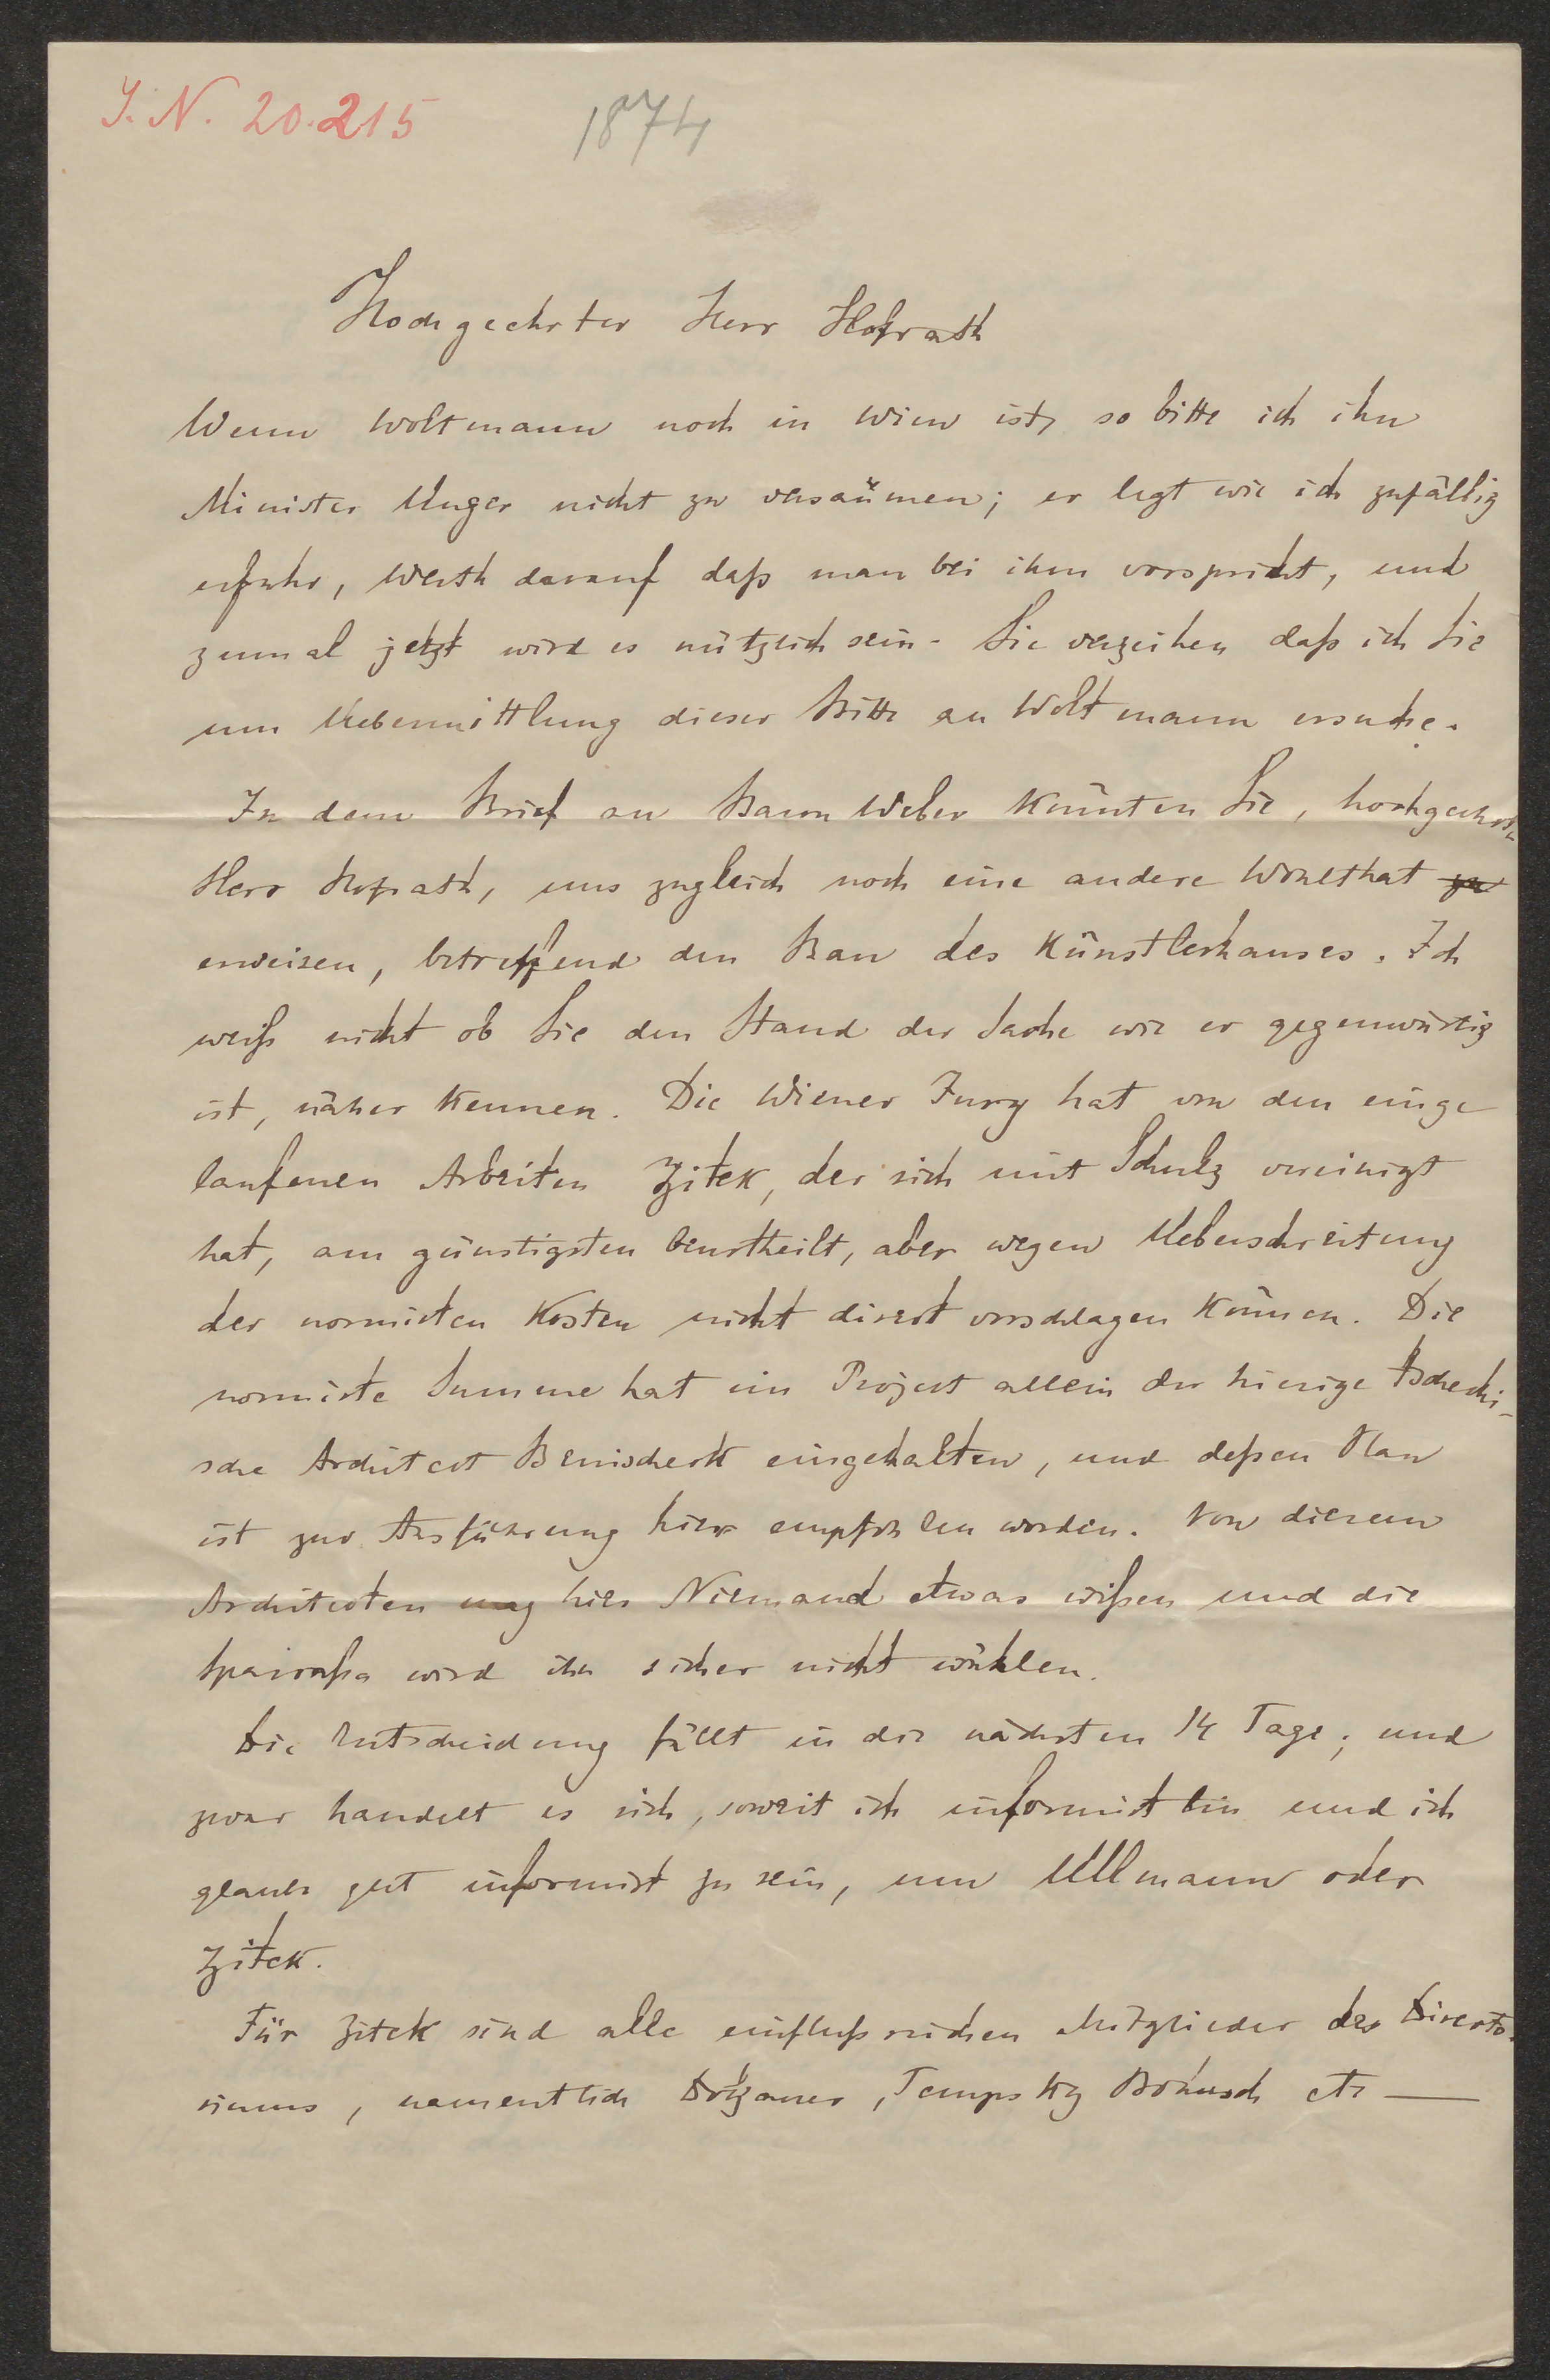 J. N. 20.215
1874
Hochgeehrter Herr Hofrath
Wenn Woltmann noch in Wien ist, so bitte ich ihn
Minister Unger nicht zu versäumen; er legt wie ich zufällig
erfuhr, Werth darauf daß man bei ihm vorspricht, und
zumal jetzt wird es nützlich sein. Sie verzeihen daß ich Sie
um Uebermittlung dieser Bitte an Woltmann ersuche.
In dem Brief an Baron Weber könnten Sie, hochgeehrter
Herr Hofrath, uns zugleich noch eine andere Wohlthat zu
erweisen, betreffend den Bau des Künstlerhauses. Ich
weiß nicht ob Sie den Stand der Sache wie er gegenwärtig
ist, näher kennen. Die Wiener Jury hat von den einge
laufenen Arbeiten Zitek, der sich mit Schulz vereinigt
hat, am günstigsten beurtheilt, aber wegen Ueberschreitung
der normirten Kosten nicht direct vorschlagen können. Die
normirte Summe hat im Project allein der hiesige tschechi-
sche Architect Benischek eingehalten, und deßen Plan
ist zur Ausführung hier empfohlen worden. Von diesem
Architecten mag hier Niemand etwas wißen und die
Sparcaßa wird ihn sicher nicht wählen.
Die Entscheidung fällt in die nächsten 14 Tage; und
zwar handelt es sich, soweit ich informirt bin und ich
glaube gut informirt zu sein, um Ullmann oder
Zitek.
Für Zitek sind alle einflußreichen Mitglieder des Directo-
riums, namentlich Tempsky etc —